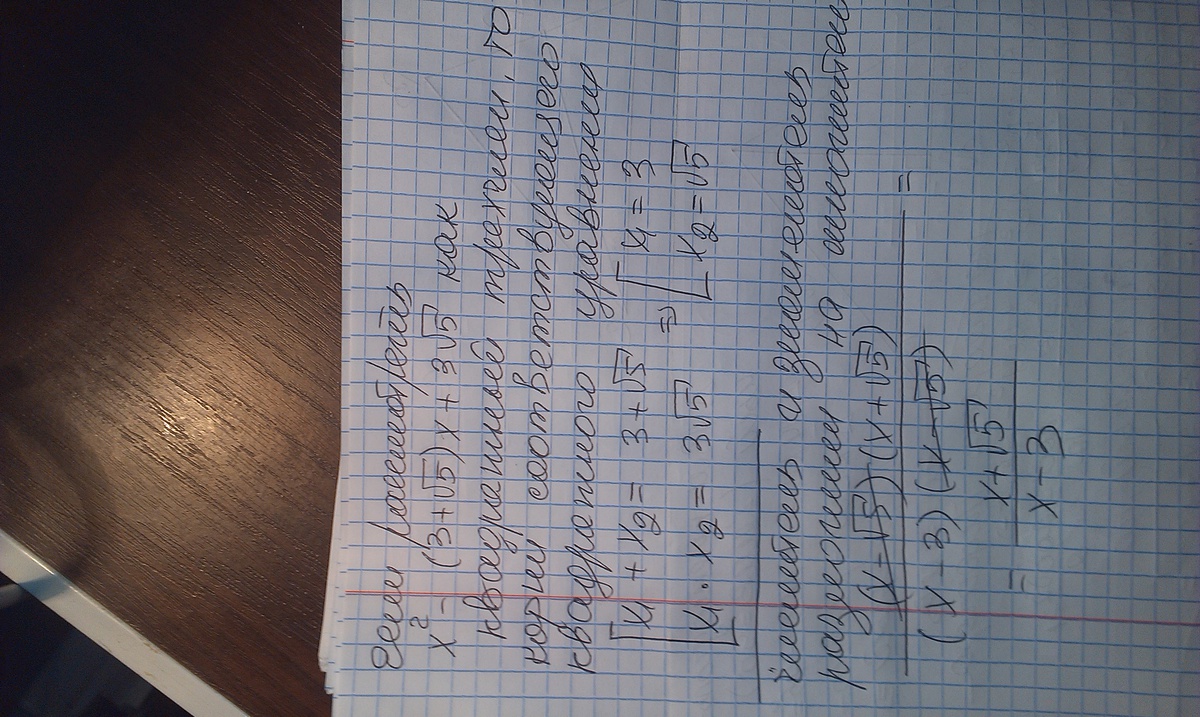 если рассмотреть
x² - (3+√5)x + 3√5 как
квадратный трехчлен, то
корни соответствующего
квадратного уравнения
[x₁ + x₂ = 3+√5 ⇒ [x₁ = 3
[x₁ · x₂ = 3√5 [x₂ = √5
числитель и знаменатель
разложим на множители
(x-√5)(x+√5)
(x-3)(x-√5) =
= x+√5
x-3